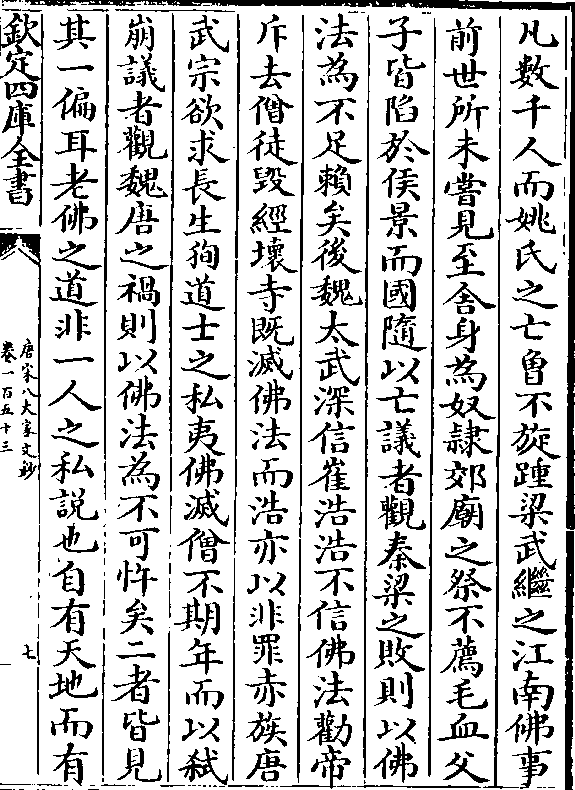 凡數千人而姚氏之亡曾不旋踵梁武繼之江南佛事
前世所未嘗見至舍身為奴隸郊廟之祭不薦毛血父
子皆陷於侯景而國隨以亡議者觀秦梁之敗則以佛
法為不足賴矣後魏太武深信崔浩浩不信佛法勸帝
斥去僧徒毀經壞寺既滅佛法而浩亦以非罪赤族唐
武宗欲求長生狥道士之私夷佛滅僧不期年而以弑
崩議者觀魏唐之禍則以佛法為不可忤矣二者皆見
其一偏耳老佛之道非一人之私說也自有天地而有
欽定四庫全書
唐宋八大家文鈔
卷一百五十三
七